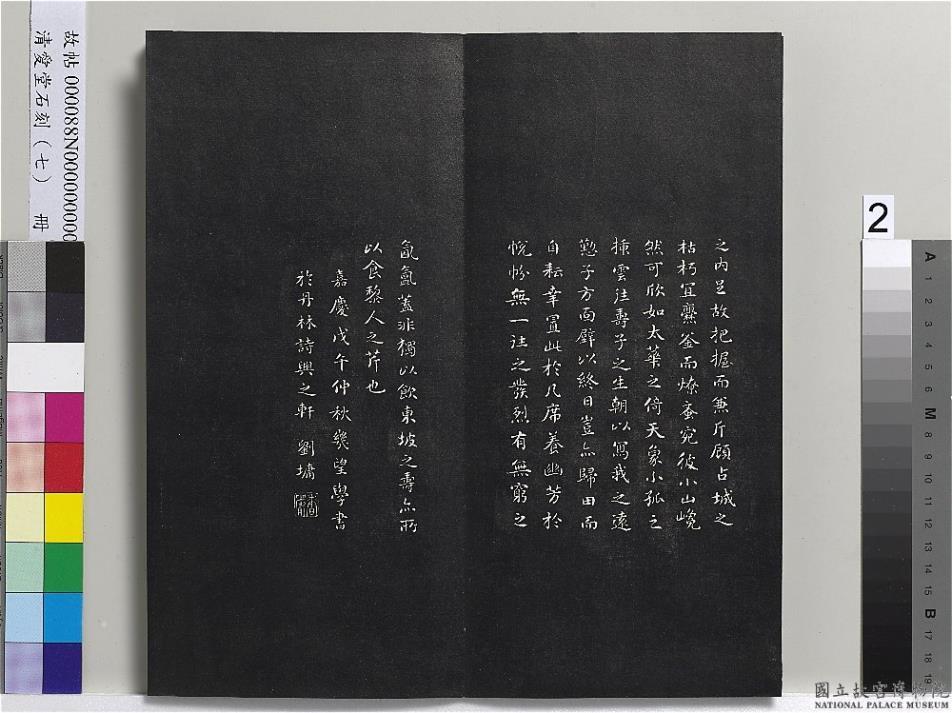 之內足故把握而兼斤顧占城之
枯朽宜爨釜而燎蚕宛彼小山巉
然可欣如太華之倚天象小孤之
插雲往壽子之生朝以寫我之遠
懃子方面壁以終日豈亦歸田而
自耘幸置此於几席養幽芳於
帨帉無一往之發烈有無窮之
氤氳蓋非獨以飲東坡之壽亦所
以食黎人之芹也
嘉慶戊午仲秋幾望學書
於丹林詩興之軒 劉墉
故帖 000088N000000000
清愛堂石刻(七) 冊
2
A 1 2 3 4 5 6 M 8 9 10 11 12 13 14 15 B 17 18 19
國立故宮博物院
NATIONAL PALACE MUSEUM